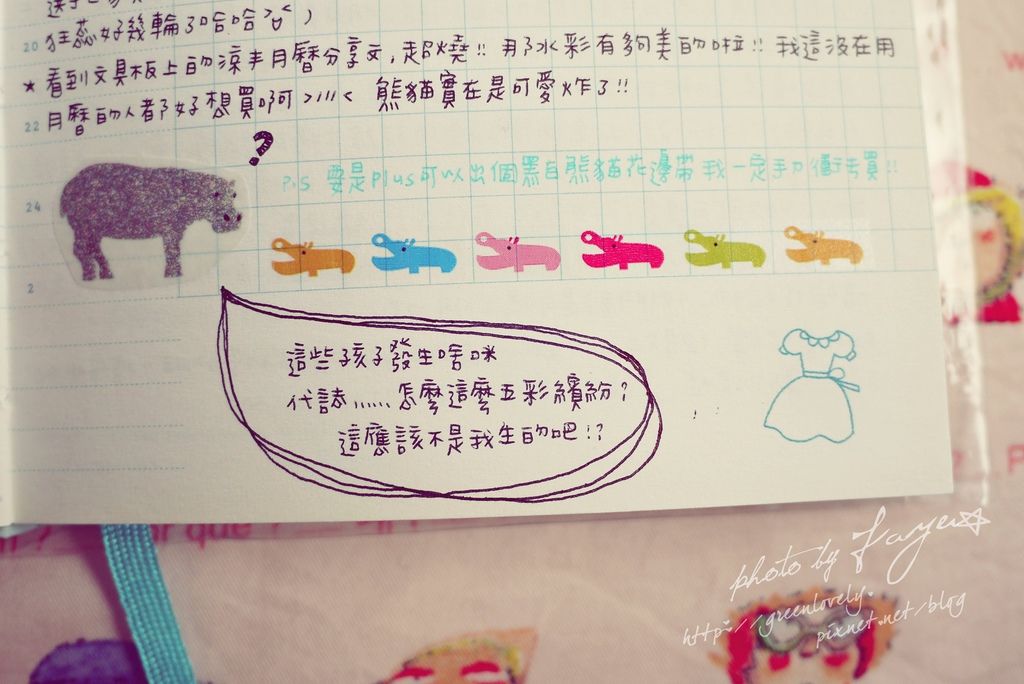 狂蕊好幾輪了哈哈
20
★ 看到文具板上的涼丰月曆分享文,超燒!! 那水彩有夠美的啦!! 我這沒在用
22 月曆的人都好想買啊 >///< 熊貓實在是可愛炸了!!
?
P.S 要是plus可以出個黑白熊貓花邊帶我一定手刀衝去買!!
24
2
這些孩子發生啥咪
代誌......怎麼這麼五彩繽紛?
這應該不是我生的吧!?
que?
photo by Faye☆
http://greenlovely.
pixnet.net/blog